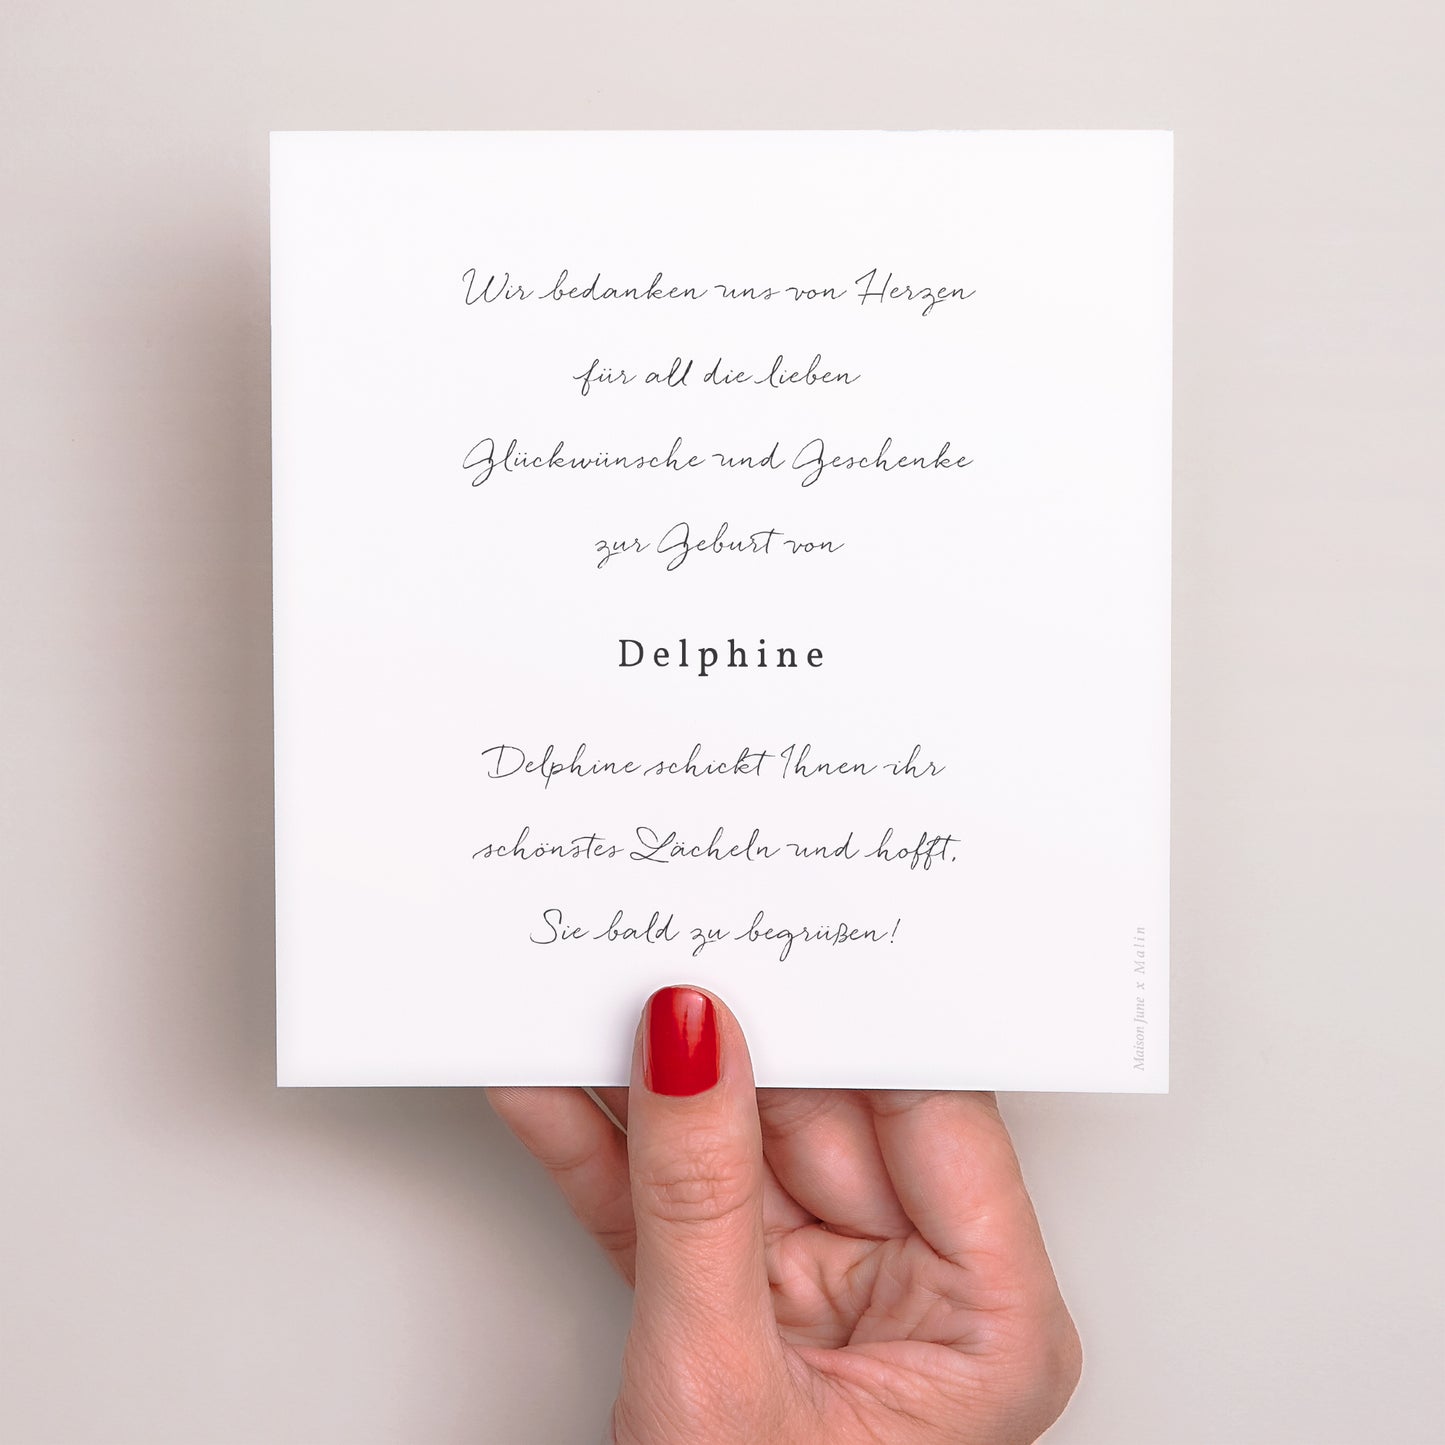 Wir bedanken uns von Herzen
für all die lieben
Glückwünsche und Geschenke
zur Geburt von
Delphine
Delphine schickt Ihnen ihr
schönstes Lächeln und hofft,
Sie bald zu begrüßen!
Maison June x Malin